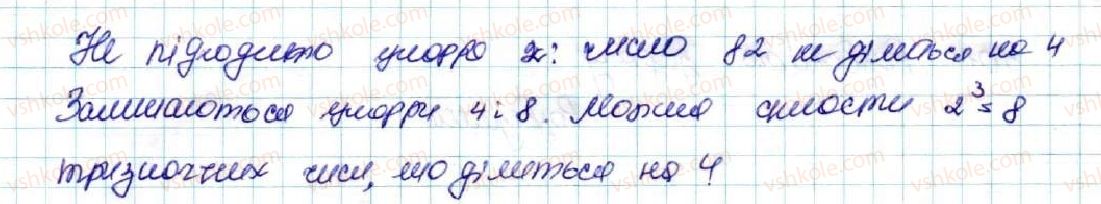 Не підходить цифра 2: число 82 не ділиться на 4
Залишаються цифри 4 і 8. Можна скласти 2³ = 8
тризначних чисел, що діляться на 4